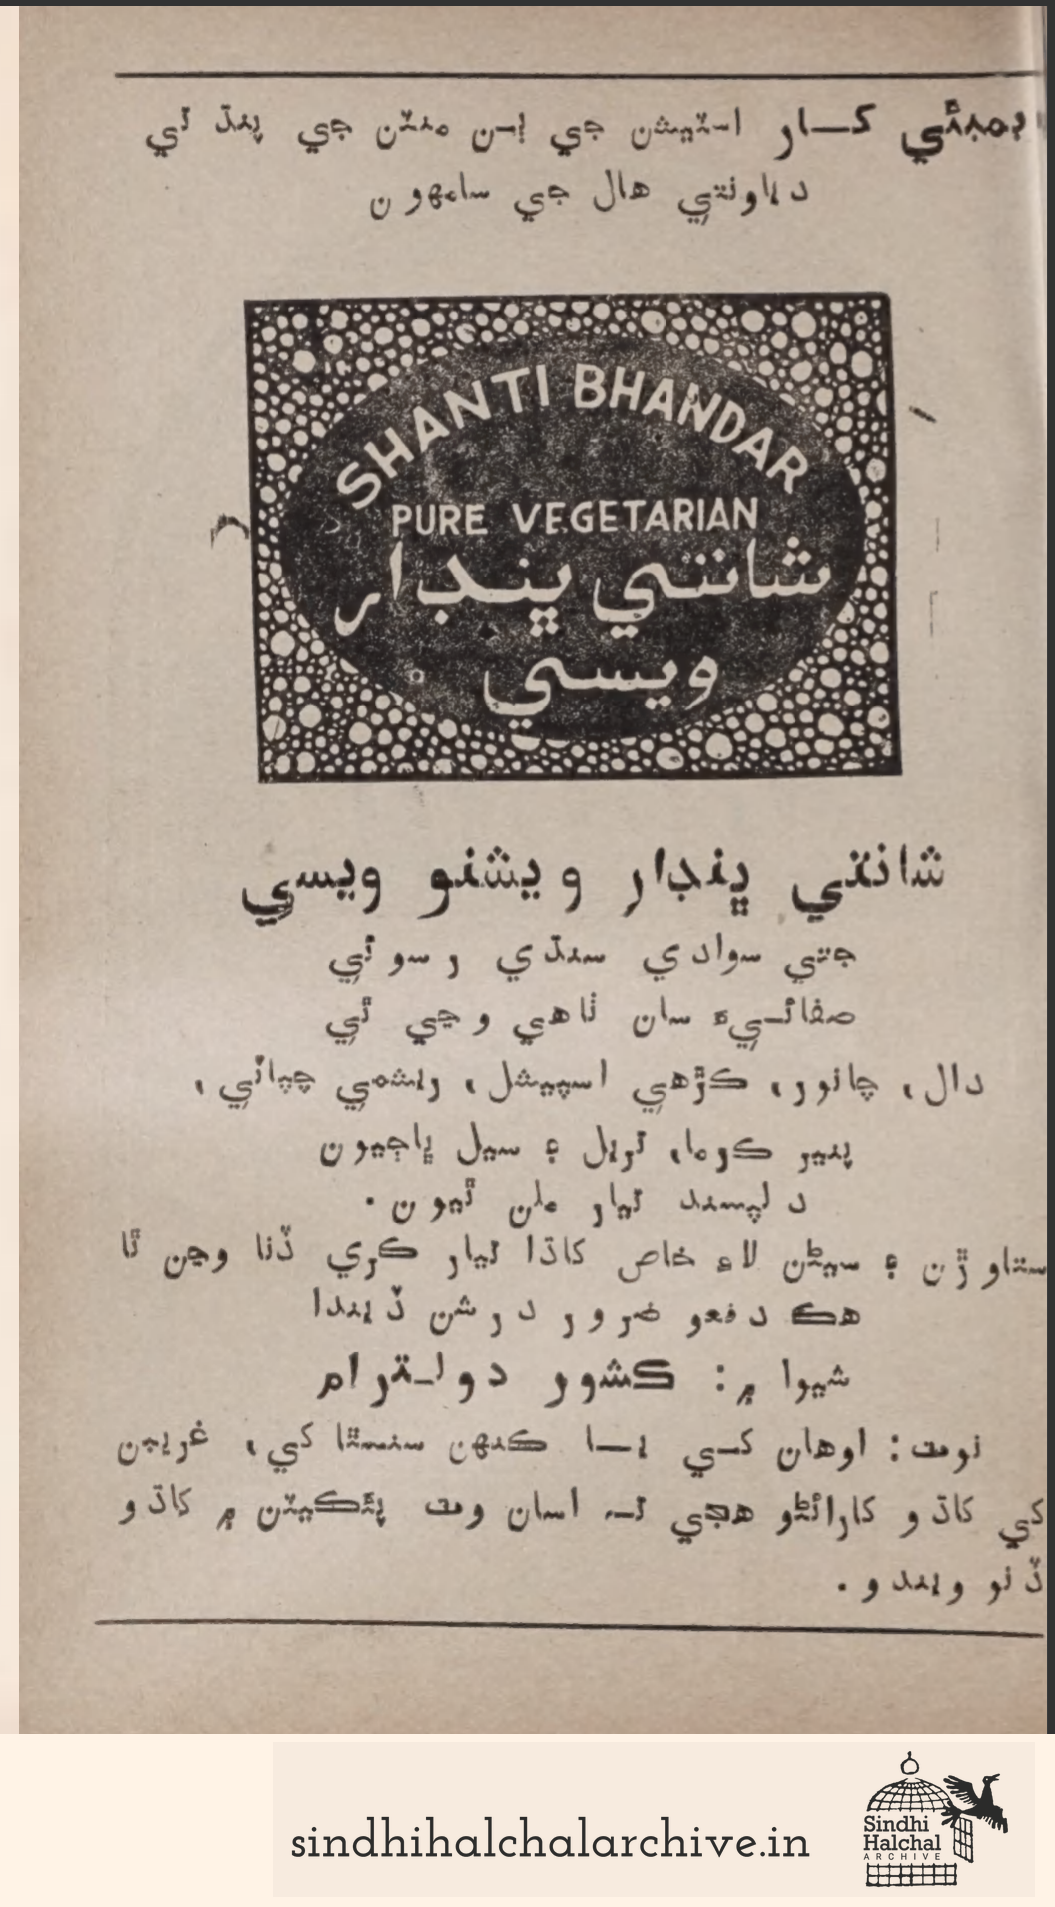 بمبئي کار اسٽيشن جي ٻن منٽن جي پنڌ تي
دیاونتي هال جي سامهون
SHANTI BHANDAR
PURE VEGETARIAN
شانتي ڀنڊار
ويسي
شانتي ڀنڊار ويشنو ويسي
جتي سوادي سنڌي رسوئي
صفائيءَ سان ٺاهي وڃي ٿي
دال، چانور، ڪڙهي اسپيشل، ريشمي چپاتي،
پنير ڪرما، تريل ۽ سيل ڀاڄيون
دلپسند تيار ملن ٿيون.
ستاوڙن ۽ سيٺن لاءِ خاص کاڌا تيار ڪري ڏنا وڃن ٿا
هڪ دفعو ضرور درشن ڏيندا
شيوا ۾: ڪشور دولترام
نوٽ: اوهان کي يا ڪنهن سنسٿا کي، غريبن
کي کاڌو کارائڻو هجي ته اسان وٽ پئڪيٽن ۾ کاڌو
ڏنو ويندو.
sindhihalchalarchive.in
Sindhi
Halchal
ARCHIVE